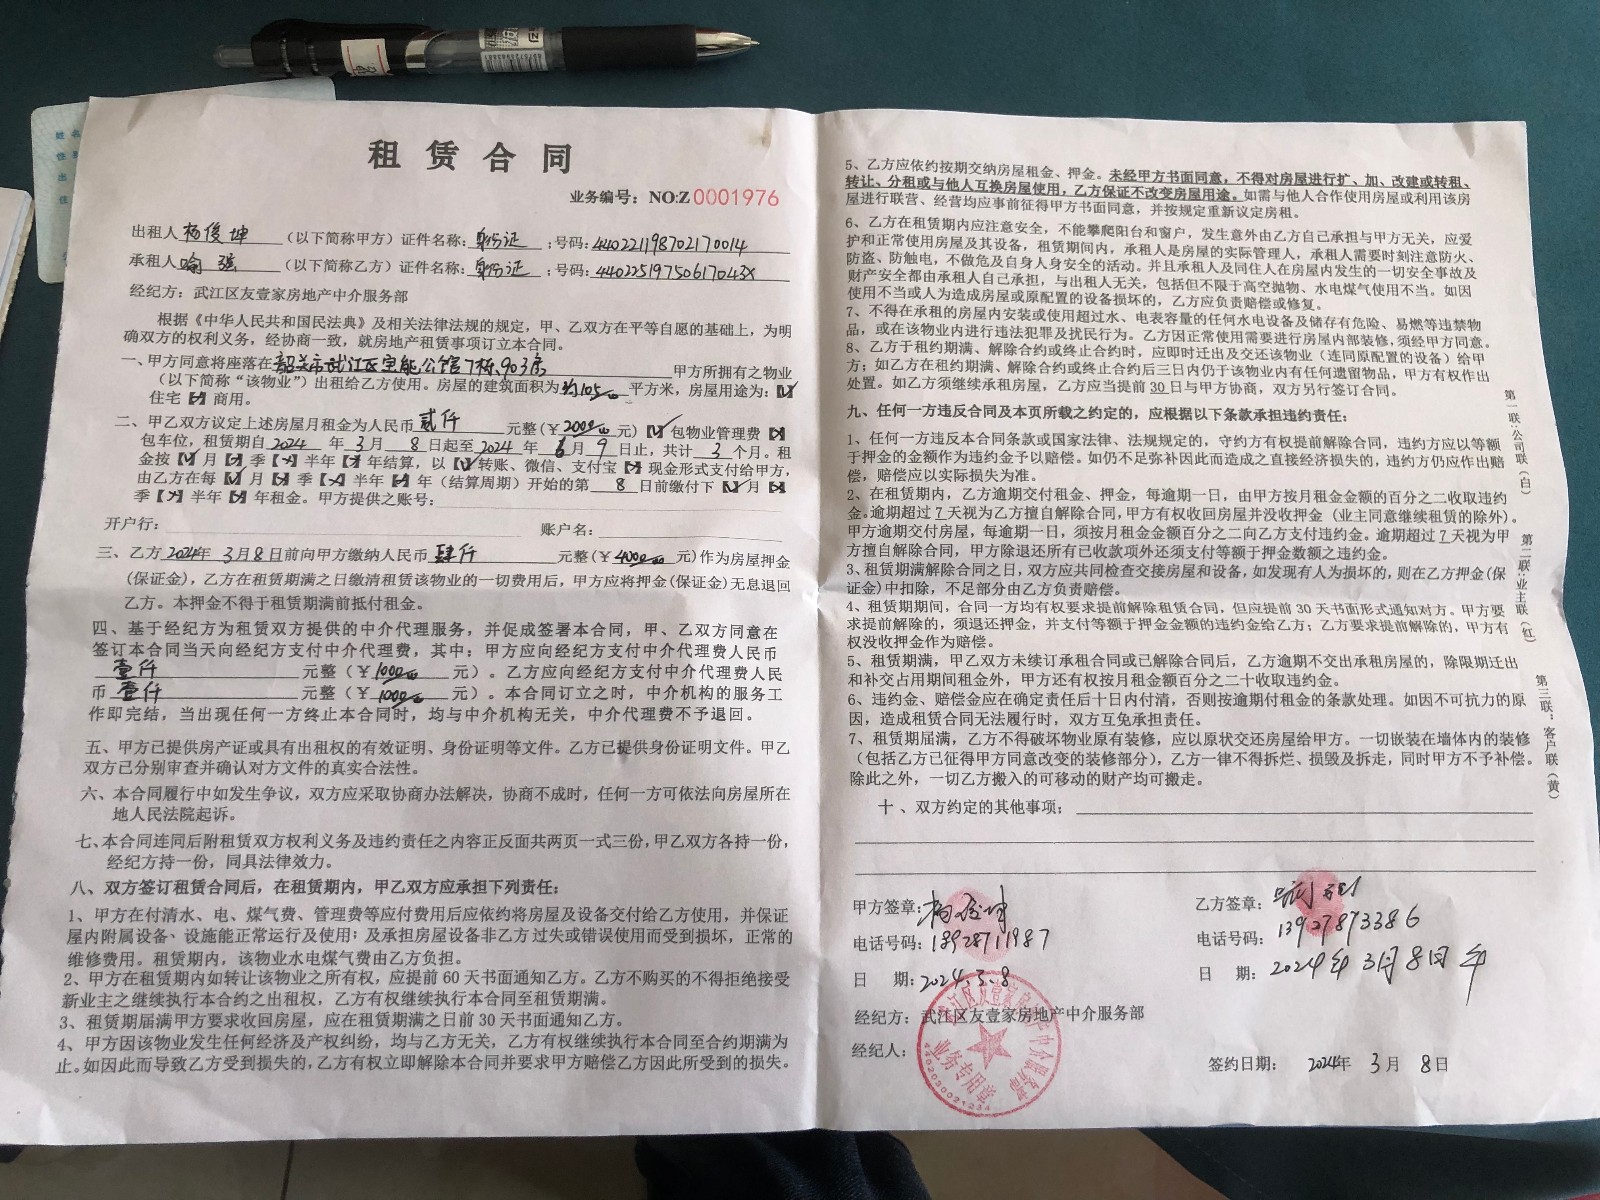 租赁合同
业务编号：NO:Z 0001976
出租人 杨俊坤 （以下简称甲方）证件名称：身份证 ；号码：440221198702170014
承租人 喻强 （以下简称乙方）证件名称：身份证 ；号码：44022519750617043X
经纪方：武江区友壹家房地产中介服务部
根据《中华人民共和国民法典》及相关法律法规的规定，甲、乙双方在平等自愿的基础上，为明
确双方的权利义务，经协商一致，就房地产租赁事项订立本合同。
一、甲方同意将座落在 韶关市武江区宝能公馆7栋903房 甲方所拥有之物业
（以下简称“该物业”）出租给乙方使用。房屋的建筑面积为 约105 平方米，房屋用途为：【✓】
住宅【×】商用。
二、甲乙双方议定上述房屋月租金为人民币 贰仟 元整（￥2000元）【✓】包物业管理费【×】
包车位，租赁期自 2024 年 3 月 8 日起至 2024 年 6 月 9 日止，共计 3 个月。租
金按【✓】月【×】季【×】半年【×】年结算，以【✓】转账、微信、支付宝【×】现金形式支付给甲方，
由乙方在每【✓】月【×】季【×】半年【×】年（结算周期）开始的第 8 日前缴付下【✓】月【×】
季【×】半年【×】年租金。甲方提供之账号：
开户行： 账户名：
三、乙方 2024年 3月8日前向甲方缴纳人民币 肆仟 元整（￥4000 元）作为房屋押金
（保证金），乙方在租赁期满之日缴清租赁该物业的一切费用后，甲方应将押金（保证金）无息退回
乙方。本押金不得于租赁期满前抵付租金。
四、基于经纪方为租赁双方提供的中介代理服务，并促成签署本合同，甲、乙双方同意在
签订本合同当天向经纪方支付中介代理费，其中：甲方应向经纪方支付中介代理费人民币
壹仟 元整（￥1000 元）。乙方应向经纪方支付中介代理费人民
币 壹仟 元整（￥1000 元）。本合同订立之时，中介机构的服务工
作即完结，当出现任何一方终止本合同时，均与中介机构无关，中介代理费不予退回。
五、甲方已提供房产证或具有出租权的有效证明、身份证明等文件。乙方已提供身份证明文件。甲乙
双方已分别审查并确认对方文件的真实合法性。
六、本合同履行中如发生争议，双方应采取协商办法解决，协商不成时，任何一方可依法向房屋所在
地人民法院起诉。
七、本合同连同后附租赁双方权利义务及违约责任之内容正反面共两页一式三份，甲乙双方各持一份，
经纪方持一份，同具法律效力。
八、双方签订租赁合同后，在租赁期内，甲乙双方应承担下列责任：
1、甲方在付清水、电、煤气费、管理费等应付费用后应依约将房屋及设备交付给乙方使用，并保证
屋内附属设备、设施能正常运行及使用；及承担房屋设备非乙方过失或错误使用而受到损坏，正常的
维修费用。租赁期内，该物业水电煤气费由乙方负担。
2、甲方在租赁期内如转让该物业之所有权，应提前60天书面通知乙方。乙方不购买的不得拒绝接受
新业主之继续执行本合约之出租权，乙方有权继续执行本合同至租赁期满。
3、租赁期届满甲方要求收回房屋，应在租赁期满之日前30天书面通知乙方。
4、甲方因该物业发生任何经济及产权纠纷，均与乙方无关，乙方有权继续执行本合同至合约期满为
止。如因此而导致乙方受到损失的，乙方有权立即解除本合同并要求甲方赔偿乙方因此所受到的损失。
5、乙方应依约按期交纳房屋租金、押金。未经甲方书面同意，不得对房屋进行扩、加、改建或转租、
转让、分租或与他人互换房屋使用，乙方保证不改变房屋用途。如需与他人合作使用房屋或利用该房
屋进行联营、经营均应事前征得甲方书面同意，并按规定重新议定房租。
6、乙方在租赁期内应注意安全，不能攀爬阳台和窗户，发生意外由乙方自己承担与甲方无关，应爱
护和正常使用房屋及其设备，租赁期间内，承租人是房屋的实际管理人，承租人需要时刻注意防火、
防盗、防触电，不做危及自身人身安全的活动。并且承租人及同住人在房屋内发生的一切安全事故及
财产安全都由承租人自己承担，与出租人无关，包括但不限于高空抛物、水电煤气使用不当。如因
使用不当或人为造成房屋或原配置的设备损坏的，乙方应负责赔偿或修复。
7、不得在承租的房屋内安装或使用超过水、电表容量的任何水电设备及储存有危险、易燃等违禁物
品，或在该物业内进行违法犯罪及扰民行为。乙方因正常使用需要进行房屋内部装修，须经甲方同意。
8、乙方于租约期满、解除合约或终止合约时，应即时迁出及交还该物业（连同原配置的设备）给甲
方；如乙方在租约期满、解除合约或终止合约后三日内仍于该物业内有任何遗留物品，甲方有权作出
处置。如乙方须继续承租房屋，乙方应当提前30日与甲方协商，双方另行签订合同。
九、任何一方违反合同及本页所载之约定的，应根据以下条款承担违约责任：
1、任何一方违反本合同条款或国家法律、法规规定的，守约方有权提前解除合同，违约方应以等额
于押金的金额作为违约金予以赔偿。如仍不足弥补因此而造成之直接经济损失的，违约方仍应作出赔
偿，赔偿应以实际损失为准。
2、在租赁期内，乙方逾期交付租金、押金，每逾期一日，由甲方按月租金金额的百分之二收取违约
金。逾期超过7天视为乙方擅自解除合同，甲方有权收回房屋并没收押金（业主同意继续租赁的除外）。
甲方逾期交付房屋，每逾期一日，须按月租金金额百分之二向乙方支付违约金。逾期超过7天视为甲
方擅自解除合同，甲方除退还所有已收款项外还须支付等额于押金数额之违约金。
3、租赁期满解除合同之日，双方应共同检查交接房屋和设备，如发现有人为损坏的，则在乙方押金（保
证金）中扣除，不足部分由乙方负责赔偿。
4、租赁期期间，合同一方均有权要求提前解除租赁合同，但应提前30天书面形式通知对方。甲方要
求提前解除的，须退还押金，并支付等额于押金金额的违约金给乙方；乙方要求提前解除的，甲方有
权没收押金作为赔偿。
5、租赁期满，甲乙双方未续订承租合同或已解除合同后，乙方逾期不交出承租房屋的，除限期迁出
和补交占用期间租金外，甲方还有权按月租金额百分之二十收取违约金。
6、违约金、赔偿金应在确定责任后十日内付清，否则按逾期付租金的条款处理。如因不可抗力的原
因，造成租赁合同无法履行时，双方互免承担责任。
7、租赁期届满，乙方不得破坏物业原有装修，应以原状交还房屋给甲方。一切嵌装在墙体内的装修
（包括乙方已征得甲方同意改变的装修部分），乙方一律不得拆烂、损毁及拆走，同时甲方不予补偿。
除此之外，一切乙方搬入的可移动的财产均可搬走。
十、双方约定的其他事项：
甲方签章：杨俊坤
电话号码：18928711987
日 期：2024.3.8
乙方签章：喻强
电话号码：13927873386
日 期：2024年3月8日 年
经纪方：武江区友壹家房地产中介服务部
经纪人：
签约日期： 2024年 3 月 8 日
武江区友壹家房地产中介服务部
业务专用章
第一联：公司联（白）
第二联：业主联（红）
第三联：客户联（黄）
姓名
出
住